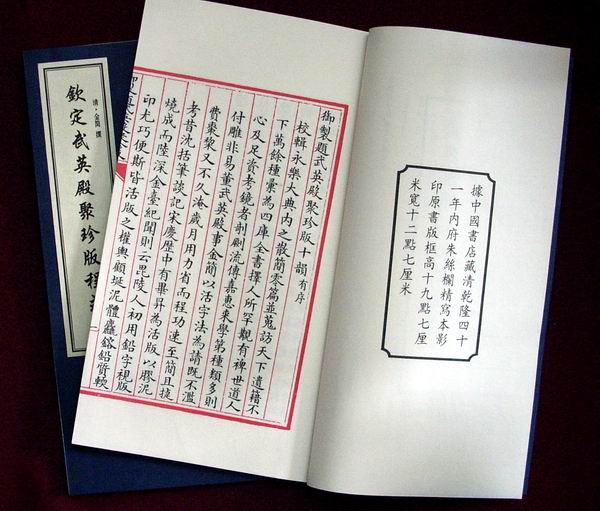 據中國書店藏清乾隆四十
一年內府朱絲欄精寫本影
印原書版框高十九點七厘
米寬十二點七厘米
御製題武英殿聚珍版十韻有序
校輯永樂大典內之散簡零篇並蒐訪天下遺籍不
下萬餘種彙為四庫全書擇人所罕覯有裨世道人
心及足資考鏡者剞劂流傳嘉惠來學第種類多則
付雕非易董武英殿事金簡以活字法為請既不濫
費棗棃又不久淹歲月用力省而程功速至簡且捷
考昔沈括筆談記宋慶歷中有畢昇為活版以膠泥
燒成而陸深金臺紀聞則云毘陵人初用鉛字視版
印尤巧便斯皆活版之權輿顧埏泥體麤鎔鉛質輭
清·金簡 撰
欽定武英殿聚珍版程